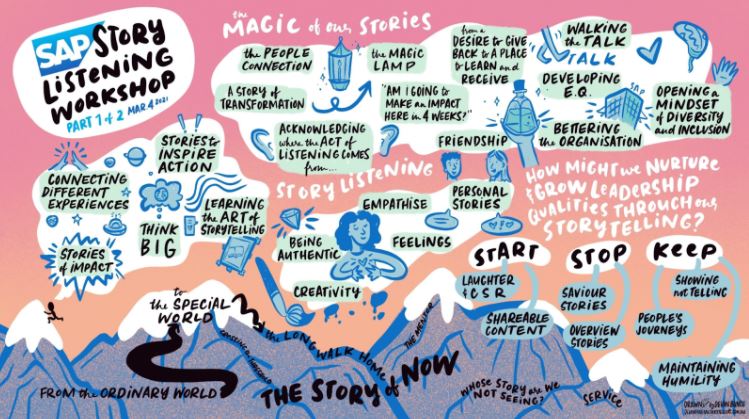 SAP STORY
LISTENING
WORKSHOP
PART 1 of 2 MAR. 4 2021
the
MAGIC of our STORIES
the PEOPLE
CONNECTION
the MAGIC
LAMP
from a
DESIRE to GIVE
BACK to A PLACE
to LEARN and
RECEIVE
WALKING
the TALK
TALK
A STORY of
TRANSFORMATION
"AM I GOING to
MAKE an IMPACT
HERE in 4 WEEKS?"
DEVELOPING
E.Q.
SAP
OPENING a
MINDSET
of DIVERSITY
and INCLUSION
ACKNOWLEDGING
where the ACT of
LISTENING COMES
from...
FRIENDSHIP
BETTERING
the ORGANISATION
STORIES to
INSPIRE
ACTION
CONNECTING
DIFFERENT
EXPERIENCES
THINK
BIG
LEARNING
the ART of
STORYTELLING
STORIES
of IMPACT
STORY LISTENING
EMPATHISE
PERSONAL
STORIES
BEING
AUTHENTIC
FEELINGS
CREATIVITY
HOW MIGHT we NURTURE
& GROW LEADERSHIP
QUALITIES THROUGH our
STORYTELLING?
START
STOP
KEEP
LAUGHTER
& CSR
SHAREABLE
CONTENT
SAVIOUR
STORIES
OVERVIEW
STORIES
SHOWING
not TELLING
PEOPLE'S
JOURNEYS
MAINTAINING
HUMILITY
to
the SPECIAL
WORLD
FROM the ORDINARY WORLD
the LONG WALK HOME
THE MENTOR
THE STORY of NOW
WHOSE STORY are WE
NOT SEEING?
SERVICE